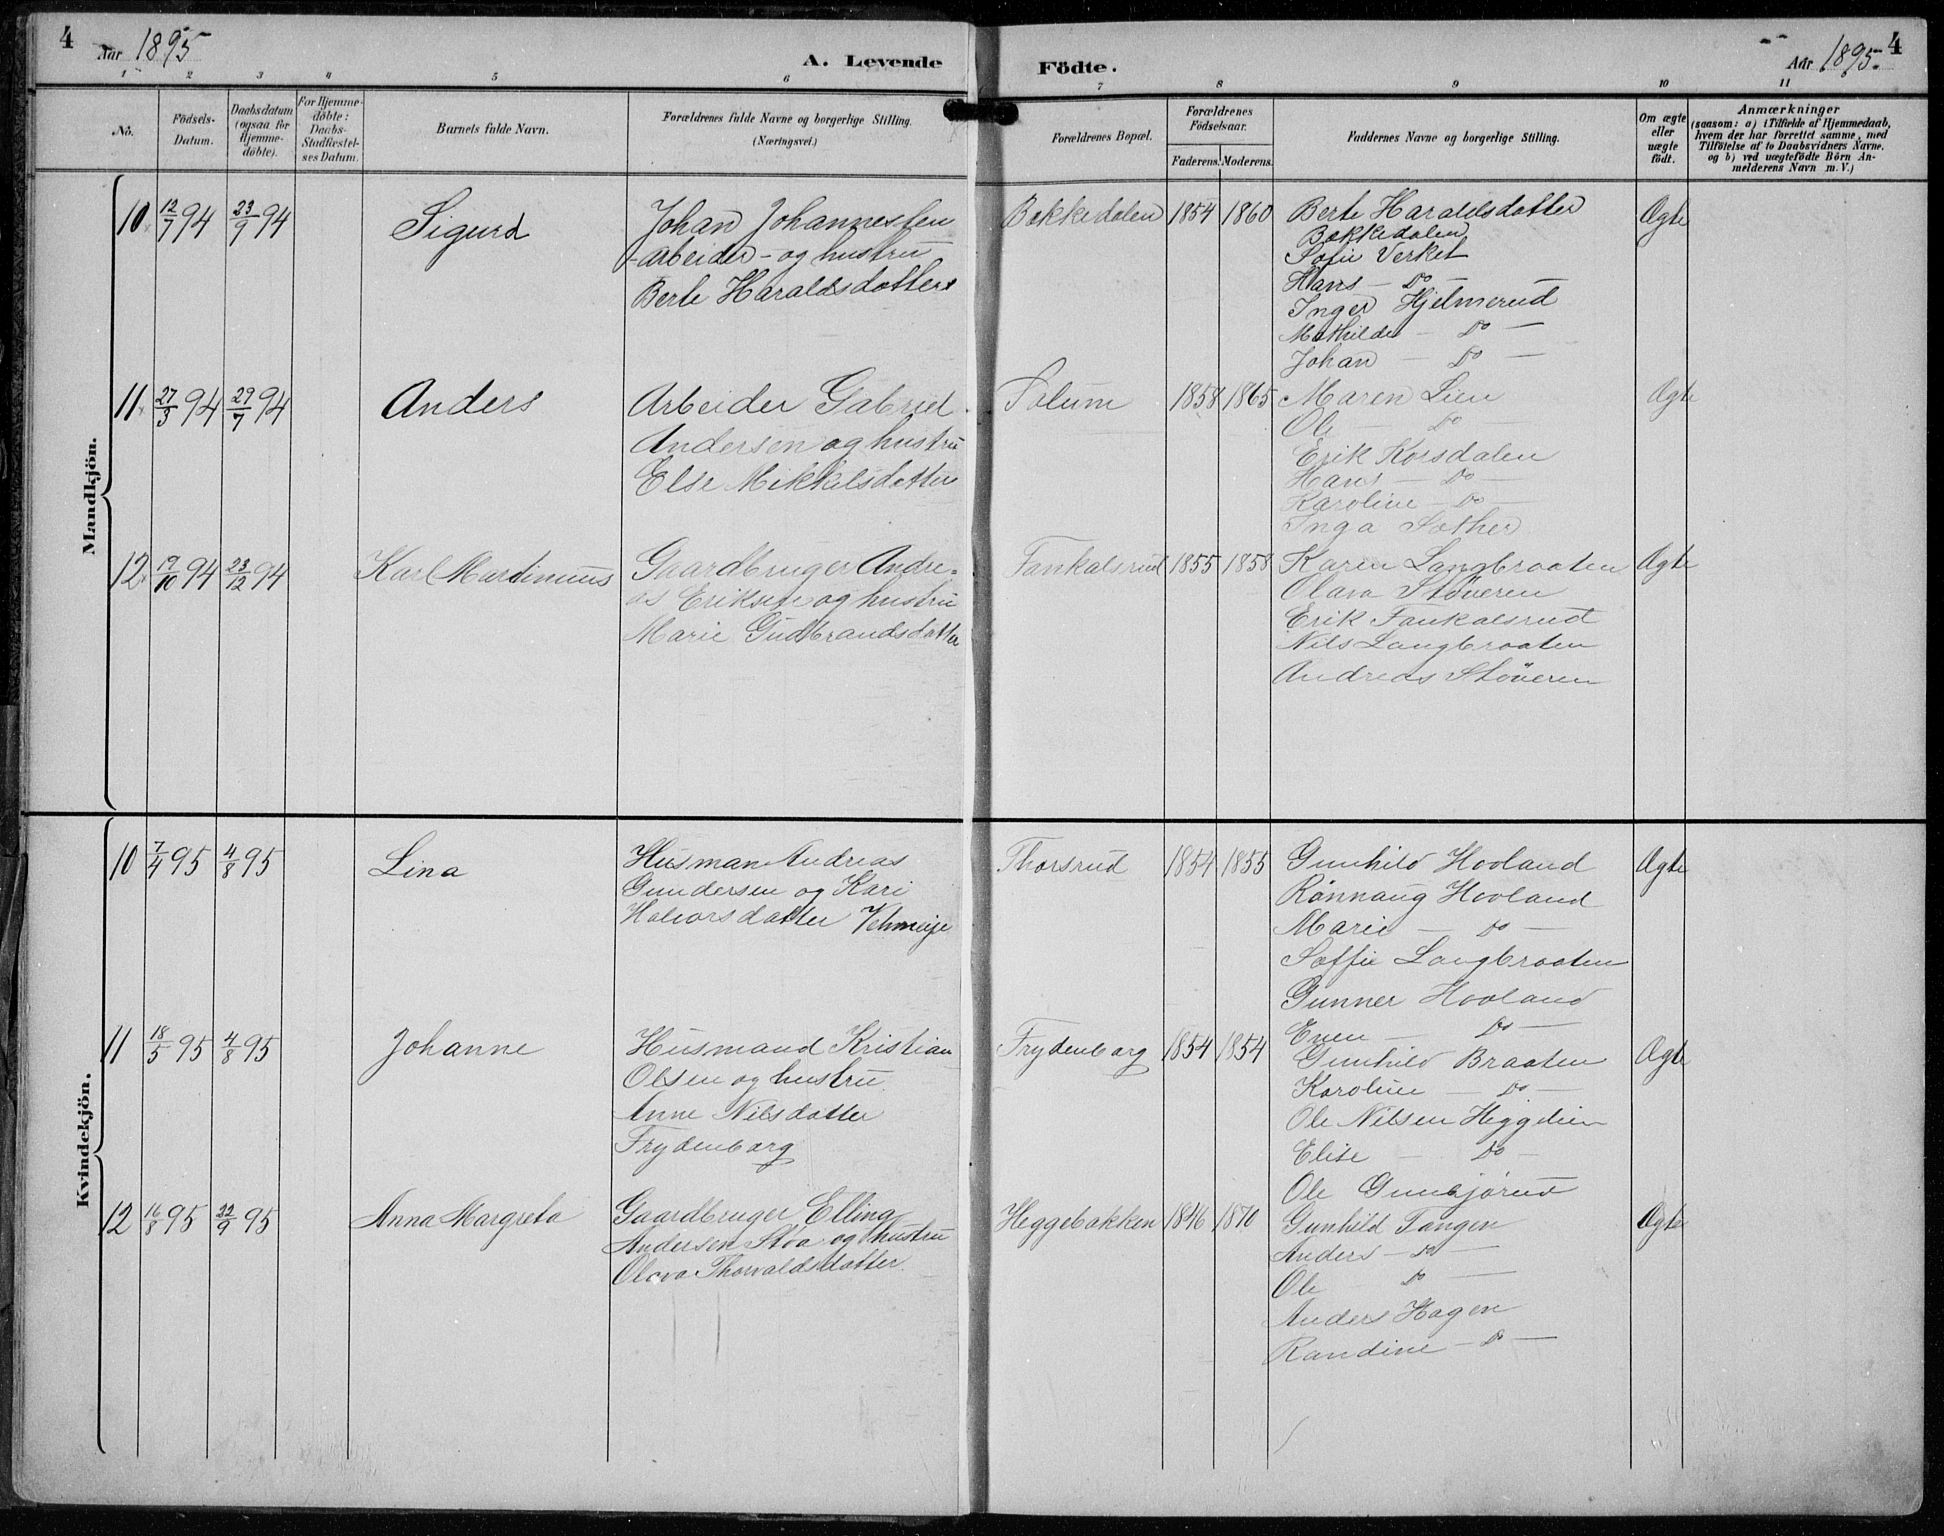 4 Aar 1895 A. Levende Födte. Aar 1895. 4
1 2 3 4 5 6 7 8 9 10 11
No.
Födsels-
Datum.
Daabsdatum
(ogsaa for
Hjemme-
döbte).
For Hjemme-
döbte:
Daabs-
Stadfæstel-
ses Datum.
Barnets fulde Navn.
Forældrenes fulde Navne og borgerlige Stilling.
(Næringsvei.)
Forældrenes Bopæl.
Forældrenes
Födselsaar.
Faderens. Moderens.
Faddernes Navne og borgerlige Stilling.
Om ægte
eller
uægte
födt.
Anmærkninger
(saasom: a) i Tilfælde af Hjemmedaab,
hvem der har forrettet samme, med
Tilföielse af to Daabsvidners Navne.
og b) ved uægtefödte Börn An-
melderens Navn m. V.)
Mandkjön.
10 12/7 94 23/9 94 Sigurd
Johan Johannessen
- arbeider - og hustru
Berte Haraldsdatter
Bakkedalen 1854 1860
Berte Haraldsdatter
Bakkedalen
Sofie Verket
Hans - Do -
Inger Hjelmerud
Mathilde - Do -
Johan - Do -
Ægte
11 27/3 94 29/7 94 Anders
Arbeider Gabriel
Andersen og hustru
Else Mikkelsdatter
Solum 1858 1865
Maren Lien
Ole - Do -
Erik Korsdalen
Hans - Do -
Karoline - Do -
Inga Sæther
Ægte
12 19/10 94 23/12 94 Karl Martinius
Gaardbruger Andre-
as Eriksen og hustru
Marie Gudbrandsdatter
Fankalsrud 1855 1858
Karen Langbraaten
Olava Støveren
Erik Fankalsrud
Nils Langbraaten
Andreas Støveren
Ægte
Kvindekjön.
10 7/4 95 4/8 95 Lina
Husman Andreas
Gundersen og Kari
Halvorsdatter
Thorsrud 1854 1855
Gunhild Hovland
Rønnaug Hovland
Marie - Do -
Soffie Langbraaten
Gunner Hovland
Even - Do -
Ægte
11 18/5 95 4/8 95 Johanne
Husmand Kristian
Olsen og hustru
Anne Nilsdatter
Frydenborg
Frydenborg 1854 1854
Gunhild Braaten
Karoline - Do -
Ole Nilsen Heggelien
Elise - Do -
Ole Gunbjørud
Ægte
12 16/8 95 22/9 95 Anna Margreta
Gaardbruger Elling
Andersen Stoa og hustru
Olava Thorvaldsdatter
Heggebakken 1846 1870
Gunhild Tangen
Anders - Do -
Ole Do -
Anders Hagen
Randine - Do -
Ægte